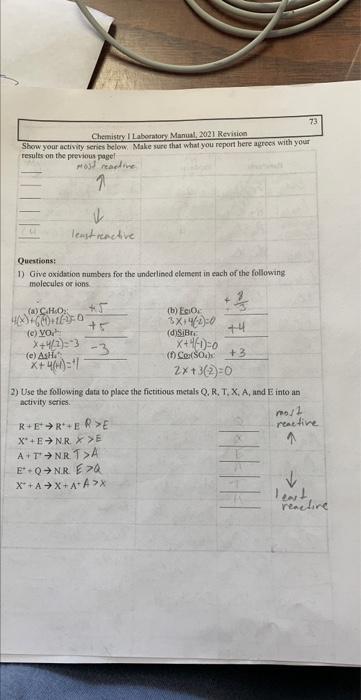 73
Chemistry I Laboratory Manual, 2021 Revision
Show your activity series below. Make sure that what you report here agrees with your
results on the previous page!
most reactive
↑
↓
least reactive
Questions:
1) Give oxidation numbers for the underlined element in each of the following
molecules or ions.
(a) +5
(b) + 8/3
3x+4(-2)=0
(c) VO₄³⁻ +5
(d) SiBr₄: +4
x+4(-2)=-3
x+4(-1)=0
(e) AsH₄⁺: -3
(f) +3
x+4(+1)=+1
2x+3(-2)=0
2) Use the following data to place the fictitious metals Q, R, T, X, A, and E into an
activity series.
R + E⁺ → R⁺ + E R>E
X⁺ + E → N.R. X>E
A + T⁺ → N.R. T>A
E⁺ + Q → N.R. E>Q
X⁺ + A → X + A⁺ A>X
most
reactive
↑
↓
least
reactive